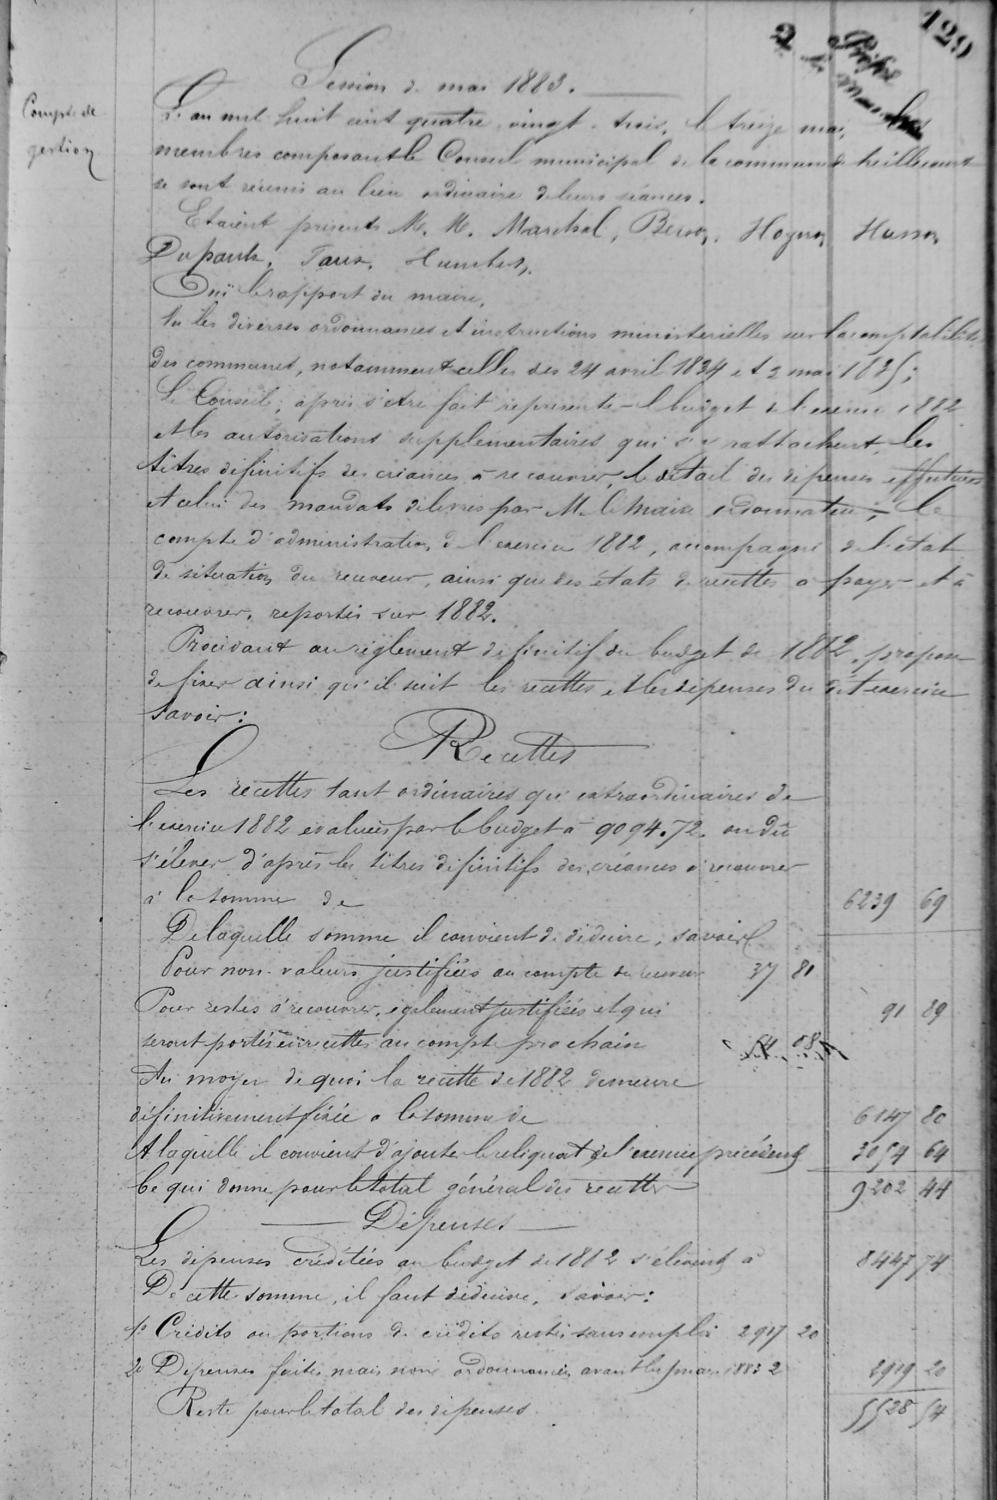 129
2
Session de mai 1883.
Compte de
gestion
L'an mil huit cent quatre-vingt-trois, le treize mai, les
membres composant le Conseil municipal de la commune de heillecourt
se sont réunis au lieu ordinaire de leurs séances.
Etaient présents M. M. Marchal, Hoyon, Husson
Dupants,
Ouï le rapport du maire,
Vu les diverses ordonnances et instructions ministerielles sur la comptabilité
des communes, notamment celles des 24 avril 1834 et 2 mai 1835;
Le Conseil, après s'être fait représenté le budget de l'exercice 1882
et les autorisations supplémentaires qui s'y rattachent, les
titres définitifs des créances à recouvrer, le détail des dépenses effectuées
et celui des mandats délivrés par M. le Maire ordonnateur; le
compte d'administration de l'exercice 1882, accompagné de l'état
de situation du receveur, ainsi que des états de recettes à payer et à
recouvrer, reportés sur 1882.
Procédant au règlement définitif du budget de 1882, propose
de fixer ainsi qu'il suit les recettes et les dépenses du dit exercice
savoir:
Recettes
Les recettes tant ordinaires que extraordinaires de
l'exercice 1882 évaluées par le budget à 9094.72. on dû
s'élever d'après les titres définitifs des créances à recouvrer
à la somme de 6239 69
De laquelle somme il convient de déduire, savoir
Pour non-valeurs justifiées au compte du receveur 37 81
Pour restes à recouvrer, également justifiées et qui 91 89
seront portés en recettes au compte prochain 54 08
Au moyen de quoi la recette de 1882 demeure
définitivement fixée à la somme de 6147 80
A laquelle il convient d'ajouter le reliquat de l'exercice précédent 3054 64
Ce qui donne pour le total général des recettes 9202 44
Dépenses
Les dépenses créditées au budget de 1882 s'élèvent à 8447 74
De cette somme, il faut déduire, savoir:
1o Crédits ou portions de crédits restés sans emploi 2917 20
2o Dépenses faites, mais non ordonnancées avant le mars 1883 2 2919 20
Reste pour le total des dépenses 5528 54